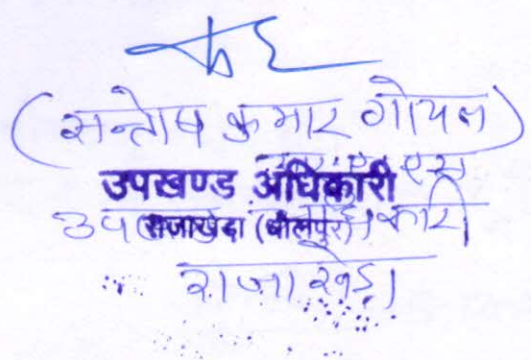 (सन्तोष कुमार गोयल)
आर. ए. एस
उपखण्ड अधिकारी
उपखण्ड अधिकारी
राजाखेडा (धौलपुर)
राजाखेड़ा